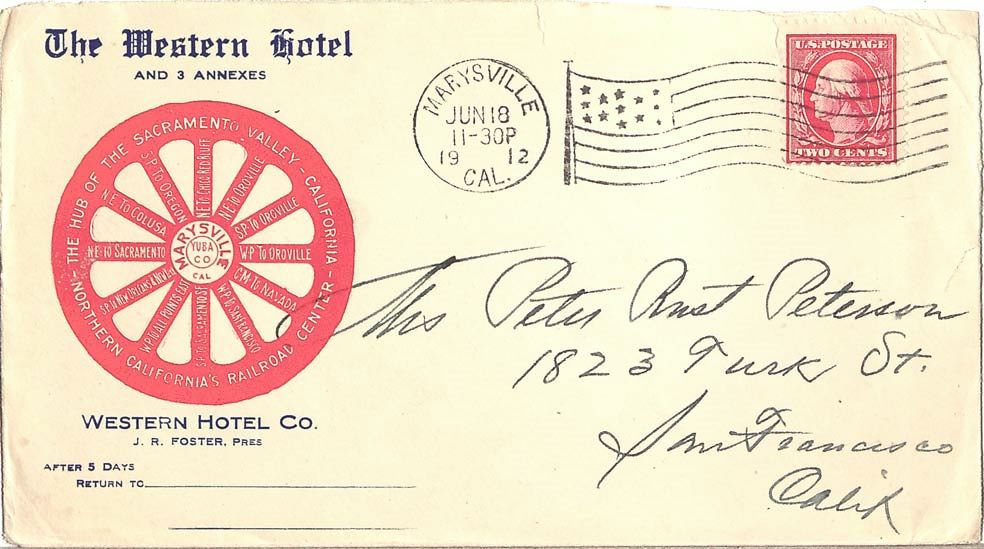 The Western Hotel
AND 3 ANNEXES
THE HUB OF THE SACRAMENTO VALLEY - CALIFORNIA
NORTHERN CALIFORNIA'S RAILROAD CENTER
N E TO CHICO RED BLUFF
N E TO OROVILLE
S P TO OROVILLE
W P TO OROVILLE
C M TO NAVADA
W P TO SAN FRANCISCO
S P TO SACRAMENTO S F
W P TO ALL POINTS EAST
S P TO NEW ORLEANS &
N E TO SACRAMENTO
N E TO COLUSA
S P TO OREGON
MARYSVILLE
YUBA
CO
CAL
WESTERN HOTEL CO.
J. R. FOSTER, PRES
AFTER 5 DAYS
RETURN TO
MARYSVILLE
JUN 18
11-30P
19 12
CAL.
U.S. POSTAGE
TWO CENTS
Mrs Peter Rust Peterson
1823 Turk St.
San Francisco
Calif